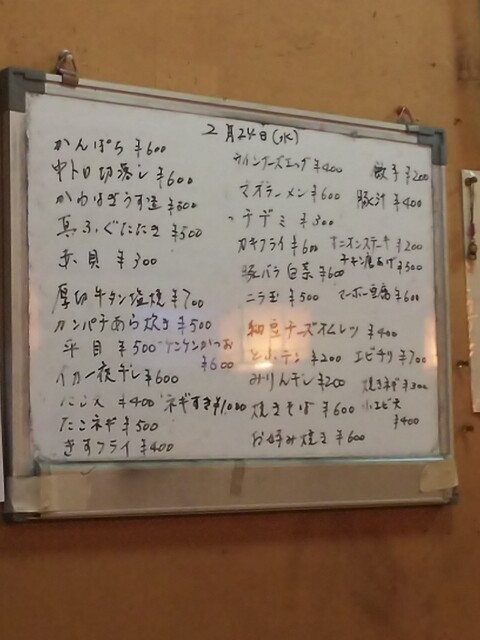 2月24日(水)
かんぱち ¥600
中トロ切落し ¥600
かわはぎうす造 ¥500
真ふぐたたき ¥500
赤貝 ¥300
厚切牛タン塩焼 ¥700
カンパチあら炊き ¥500
平目 ¥500 ケンケンかつお ¥600
イカ一夜干し ¥600
たこ天 ¥400 ネギすき ¥1,000
たこネギ ¥500
きすフライ ¥400
ウインナーズエッグ ¥400 餃子 ¥200
マボラーメン ¥600 豚汁 ¥400
チヂミ ¥300
カキフライ ¥600 オニオンステーキ ¥200
豚バラ白菜 ¥600 チキン唐あげ ¥500
ニラ玉 ¥500 マーボー豆腐 ¥600
納豆チーズオムレツ ¥400
¥200 エビチリ ¥700
みりん干し ¥200 焼きネギ ¥300
焼きそば ¥600 小エビ天 ¥400
お好み焼き ¥600